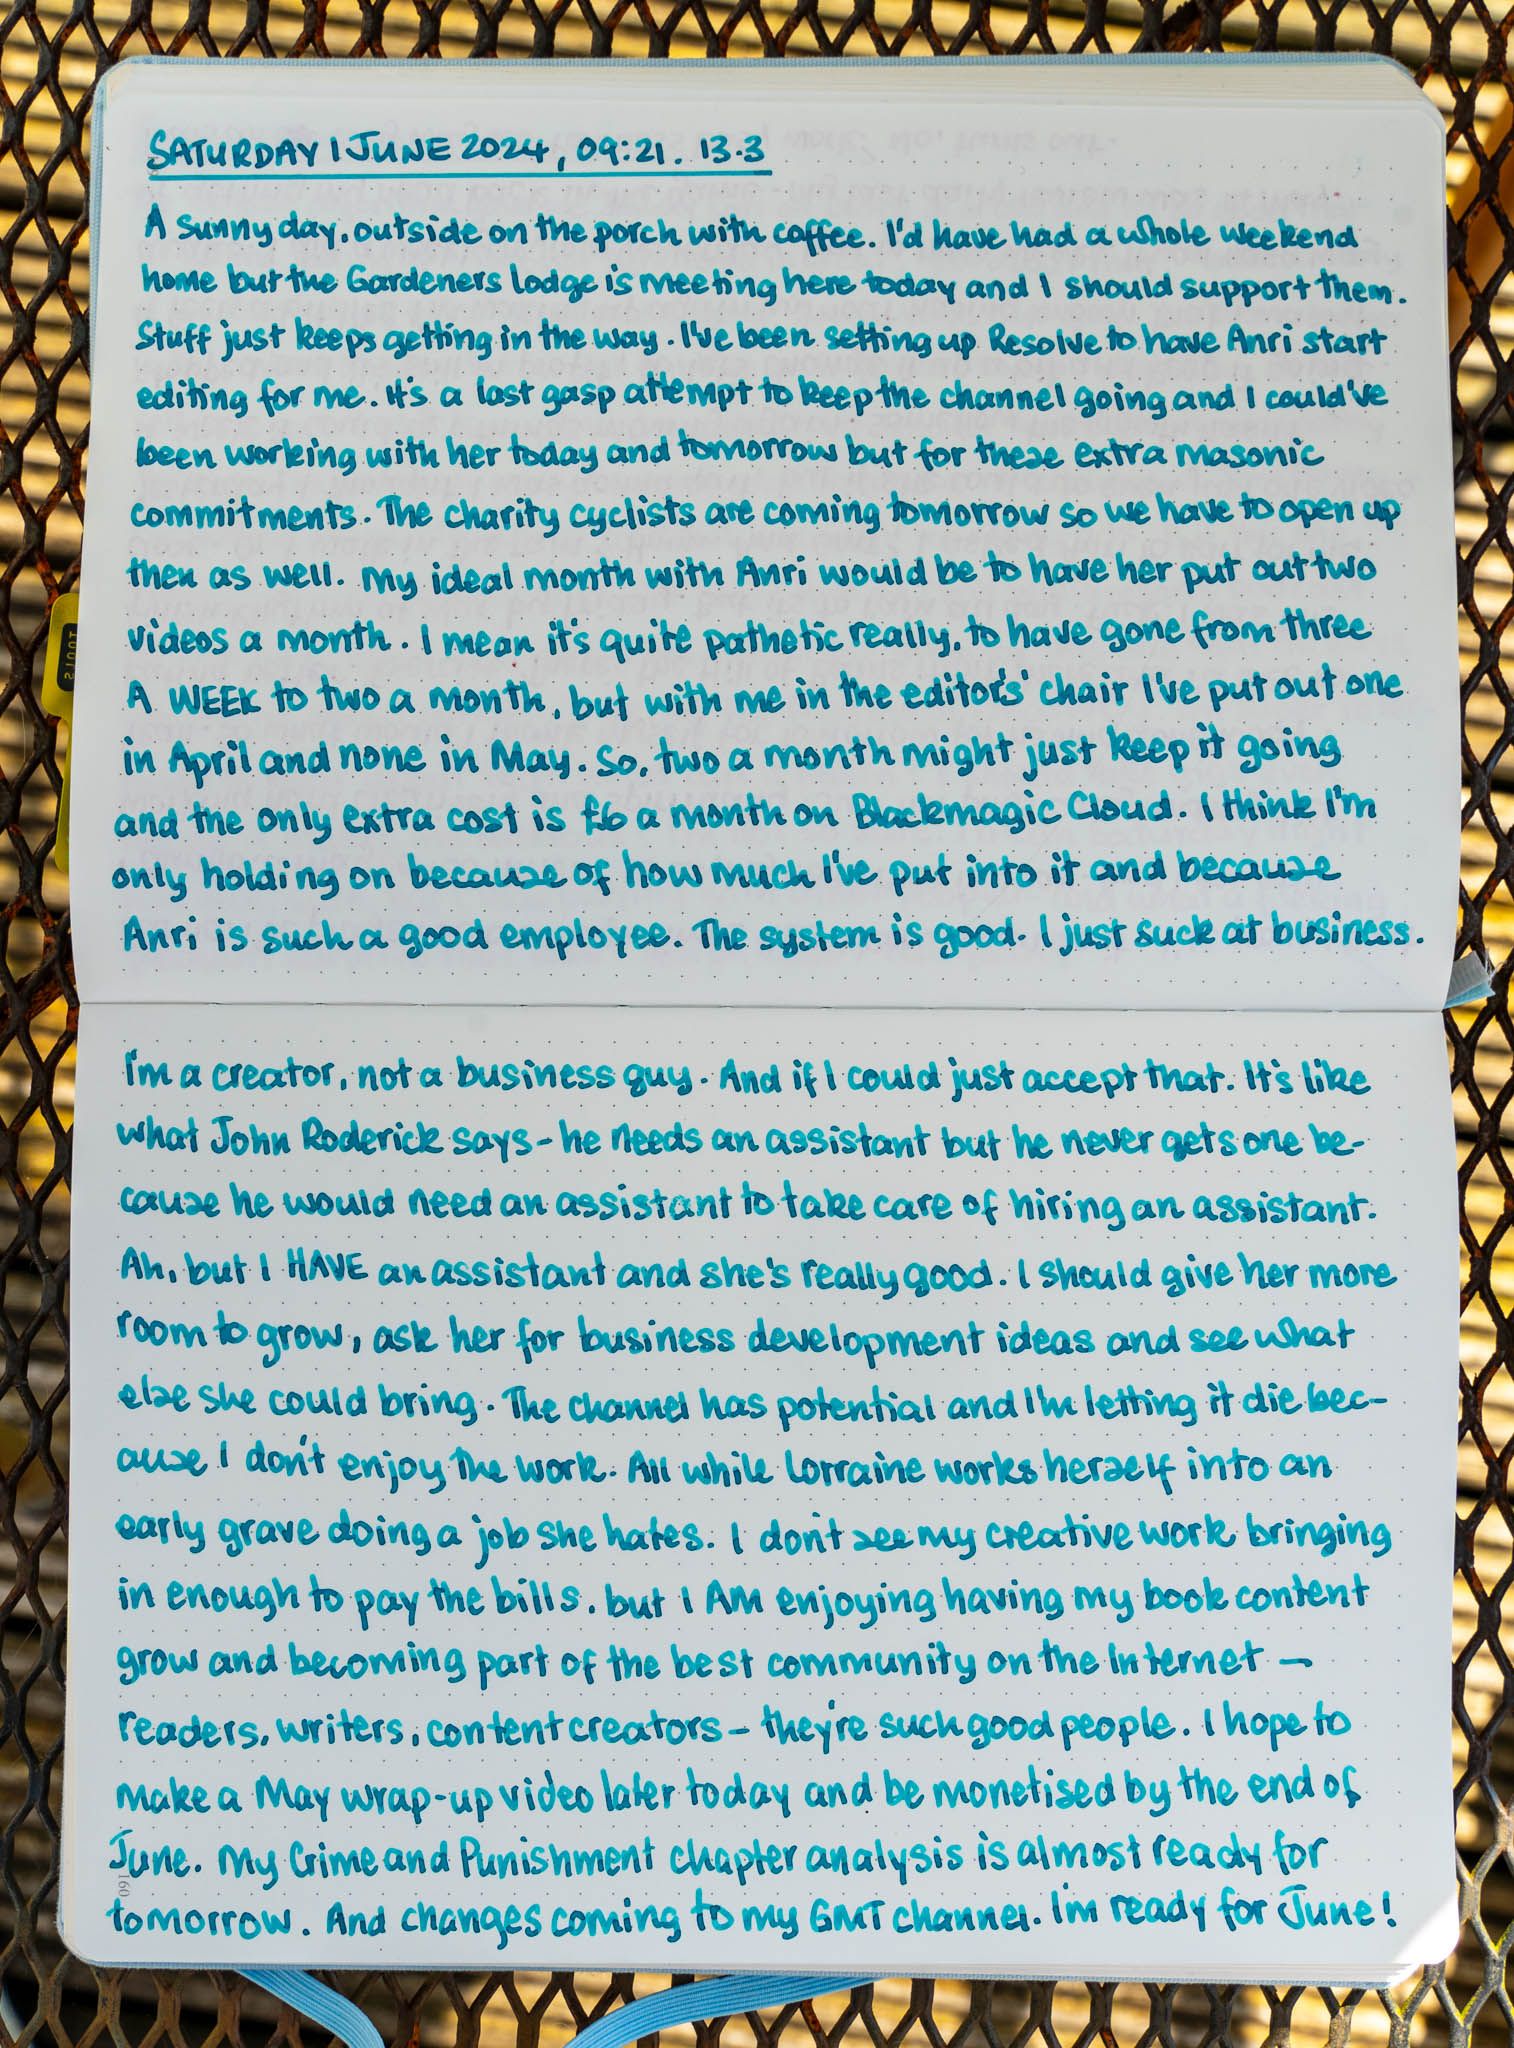 SATURDAY 1 JUNE 2024, 09:21. 13.3
A sunny day, outside on the porch with coffee. I'd have had a whole weekend
home but the Gardeners Lodge is meeting here today and I should support them.
Stuff just keeps getting in the way. I've been setting up Resolve to have Anri start
editing for me. It's a last gasp attempt to keep the channel going and I could've
been working with her today and tomorrow but for these extra masonic
commitments. The charity cyclists are coming tomorrow so we have to open up
then as well. My ideal month with Anri would be to have her put out two
videos a month. I mean it's quite pathetic really, to have gone from three
A WEEK to two a month, but with me in the editor's' chair I've put out one
in April and none in May. So, two a month might just keep it going
and the only extra cost is £6 a month on Blackmagic Cloud. I think I'm
only holding on because of how much I've put into it and because
Anri is such a good employee. The system is good. I just suck at business.
I'm a creator, not a business guy. And if I could just accept that. It's like
what John Roderick says - he needs an assistant but he never gets one be-
cause he would need an assistant to take care of hiring an assistant.
Ah, but I HAVE an assistant and she's really good. I should give her more
room to grow, ask her for business development ideas and see what
else she could bring. The channel has potential and I'm letting it die bec-
ause I don't enjoy the work. All while Lorraine works herself into an
early grave doing a job she hates. I don't see my creative work bringing
in enough to pay the bills, but I AM enjoying having my book content
grow and becoming part of the best community on the Internet —
readers, writers, content creators - they're such good people. I hope to
make a May wrap-up video later today and be monetised by the end of
June. My Crime and Punishment chapter analysis is almost ready for
tomorrow. And changes coming to my GMT channel. I'm ready for June!
160
TOOLS